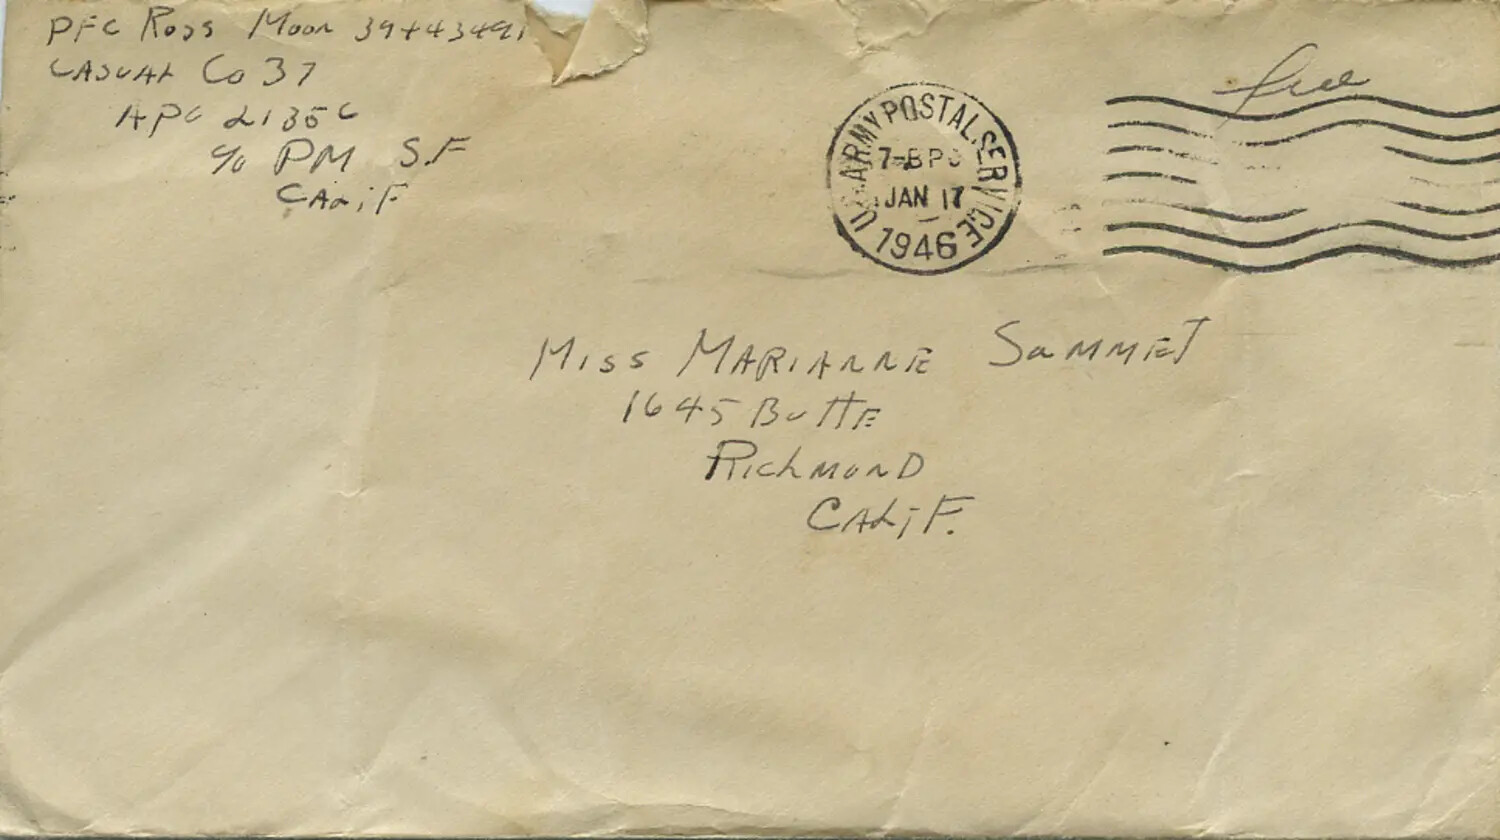 PFC Ross Moon 39443491
CASUAL Co 37
APO 21356
c/o PM S.F
CALiF
free
U.S. ARMY POSTAL SERVICE
JAN 17
1946
Miss MARIANNE SammET
1645 BuTTE
RichmonD
CALiF.